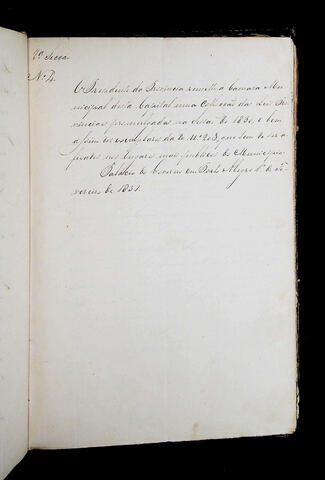 2ª Secça
Nº 4.
O Presidente da Provincia remette a Camara Mu-
nicipal desta Capital uma Collecção das Leis Pro-
vinciaes promulgadas na Sessão de 1850, e bem
assim os exemplares da de Nº 203, que tem de ser a
nos lugares mais publicos do Municipio
Palacio do Governo em Porto Alegre 1º de Fe-
vereiro de 1851.